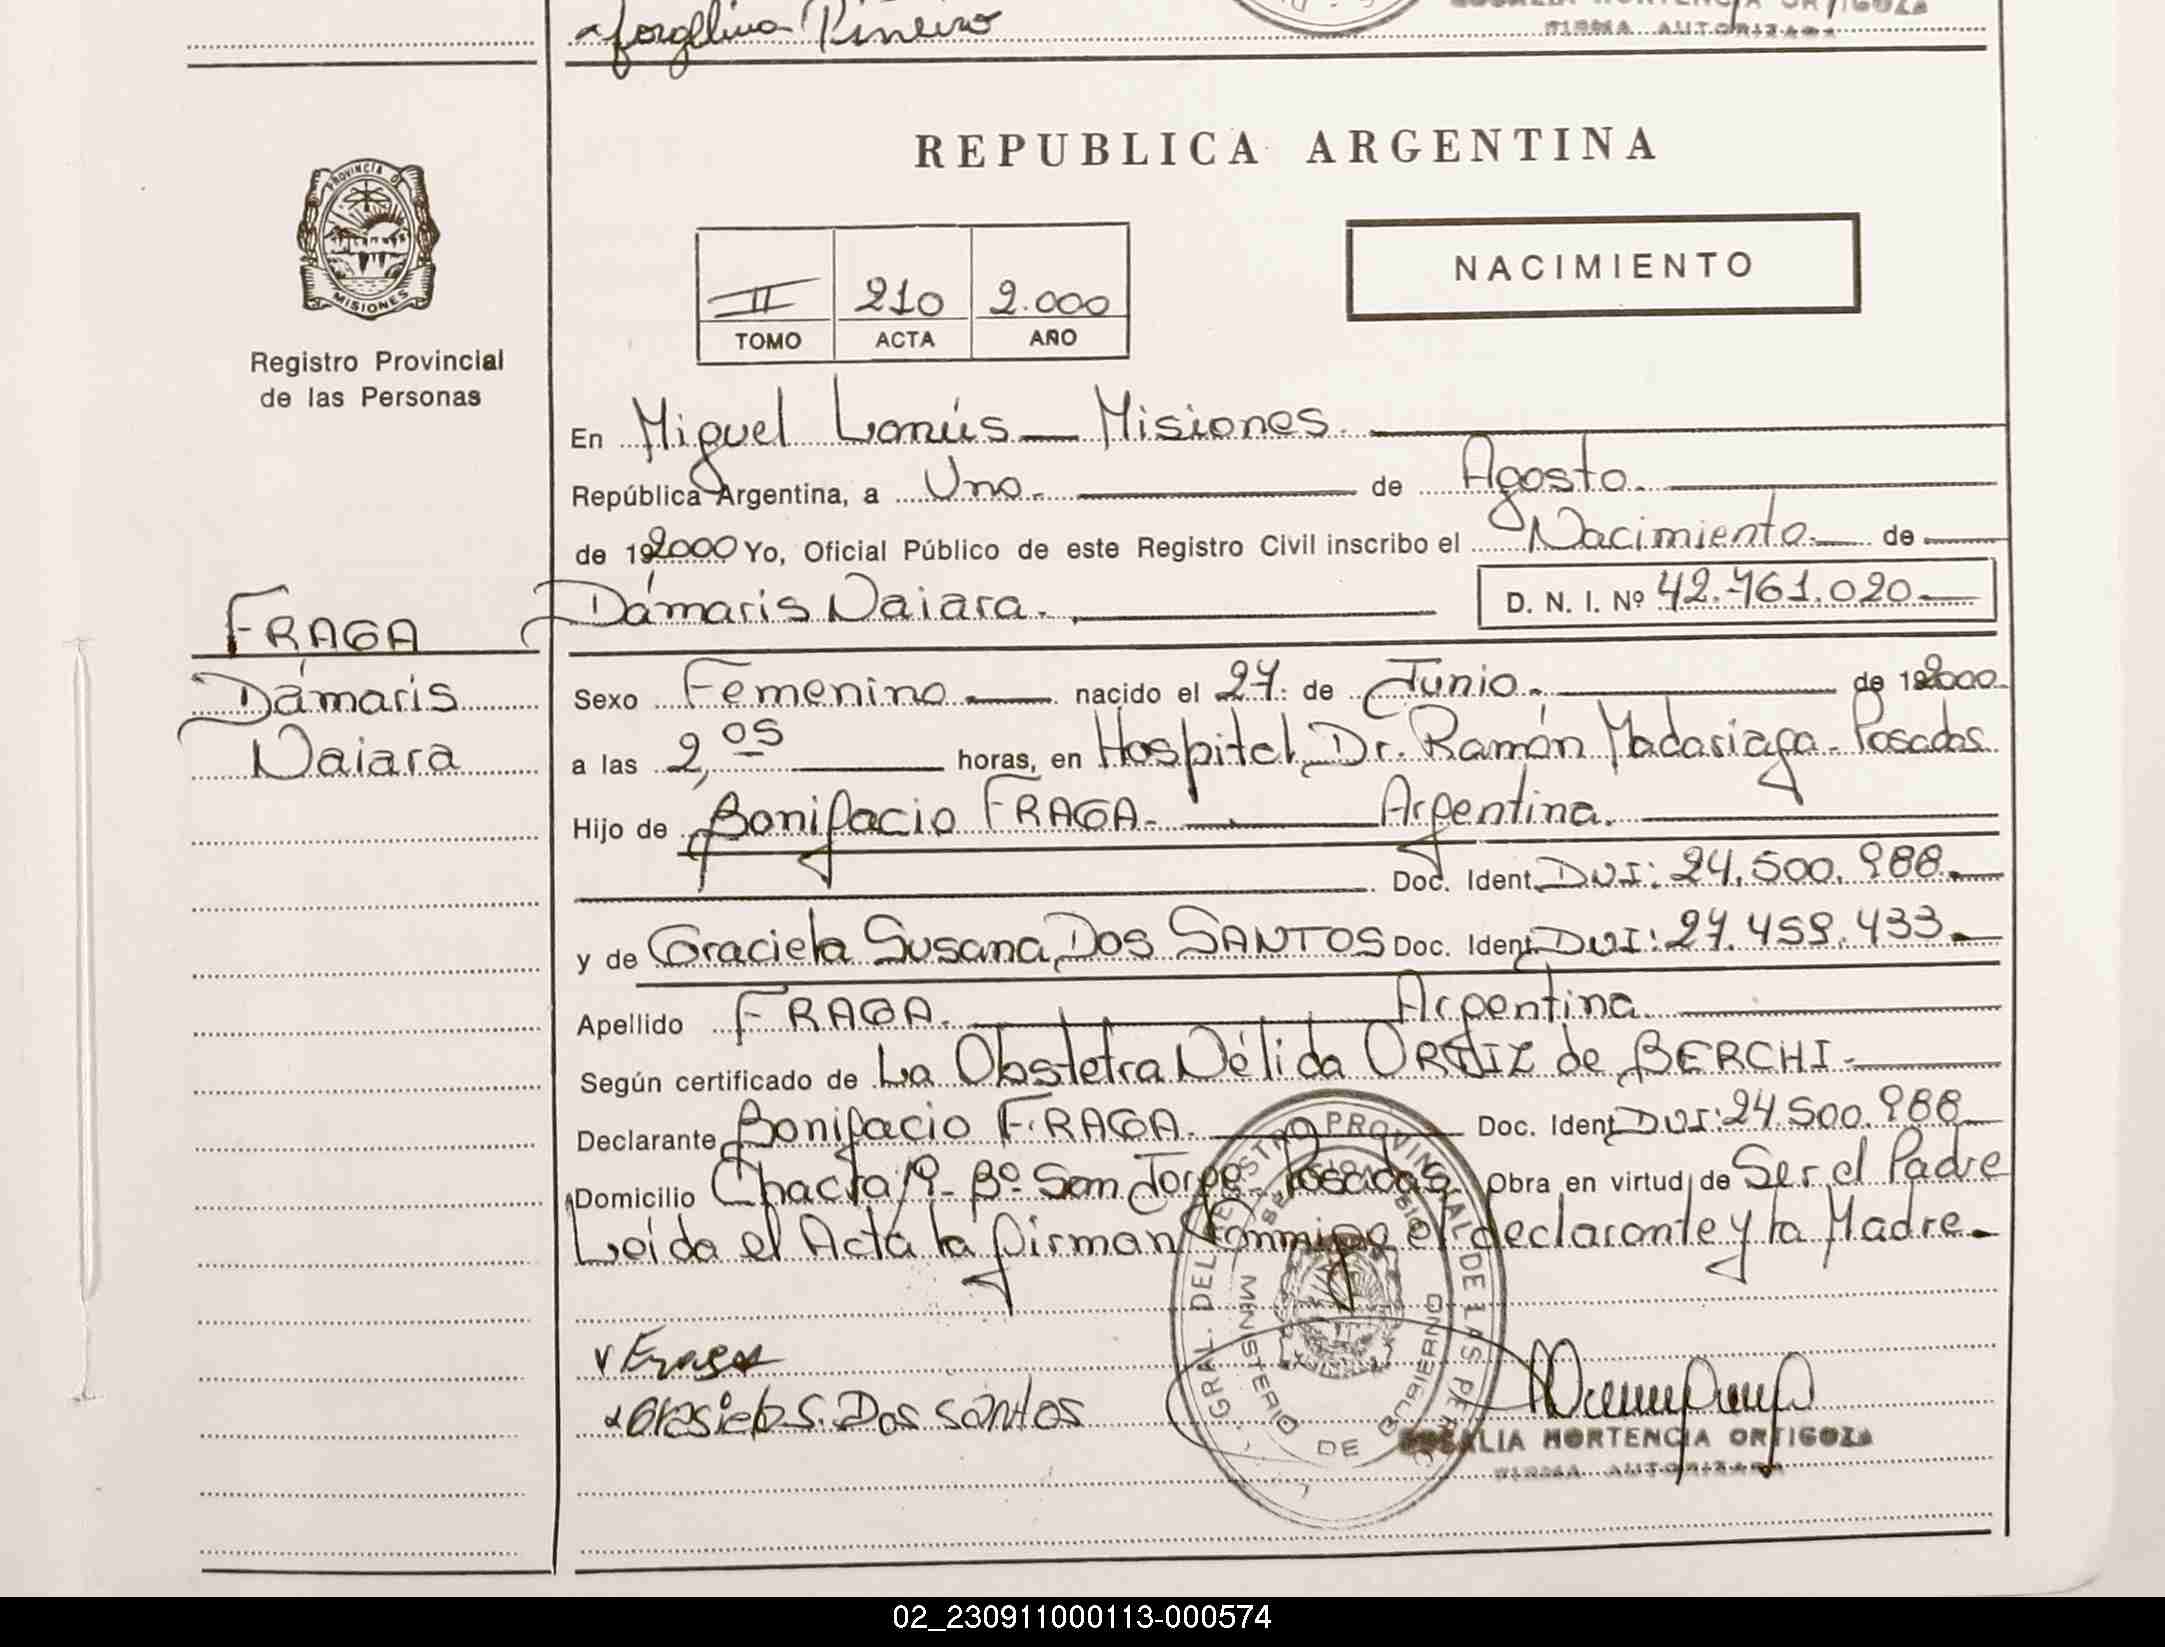 Piñeiro
ROSALIA HORTENCIA ORTIGOZA
FIRMA AUTORIZADA
PROVINCIA DE
MISIONES
Registro Provincial
de las Personas
REPUBLICA ARGENTINA
II 210 2.000
TOMO ACTA AÑO
NACIMIENTO
En Miguel Lanús — Misiones.
República Argentina, a Uno. de Agosto.
de 192000 Yo, Oficial Público de este Registro Civil inscribo el Nacimiento. de
Dámaris Naiara. D. N. I. Nº 42.761.020.
FRAGA
Dámaris
Naiara
Sexo Femenino nacido el 27. de Junio. de 192000.
a las 2,05 horas, en Hospital Dr. Ramón Madariaga - Posadas
Hijo de Bonifacio FRAGA. Argentina.
Doc. Ident. DNI: 24.500.988.
y de Graciela Susana Dos SANTOS Doc. Ident. DNI: 27.459.433.
Apellido FRAGA. Argentina.
Según certificado de La Obstetra Nélida ORTIZ de BERCHI.
Declarante Bonifacio FRAGA. Doc. Ident. DNI: 24.500.988
Domicilio Chacra 9 - Bº San Jorge - Posadas. Obra en virtud de Ser el Padre
Leída el Acta la firman Conmigo el declarante y la Madre.
GRAL. DEL REGISTRO PROVINCIAL DE LAS PERS
MINISTERIO DE GOBIERNO
Fraga
Grasiela S. Dos santos
ROSALIA HORTENCIA ORTIGOZA
FIRMA AUTORIZADA
02_230911000113-000574